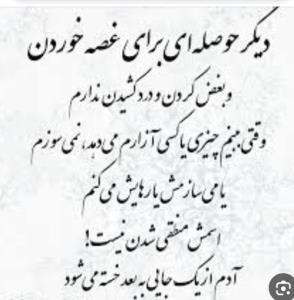 دیگر حوصله‌ای برای غصه خوردن
و بغض کردن و درد کشیدن ندارم
وقتی میبینم چیزی یا کسی آزارم می‌دهد، نمی‌سوزم
یا می‌سازمش یا رهایش می‌کنم
اسمش منطقی شدن نیست!
آدم از یک جایی به بعد خسته می‌شود